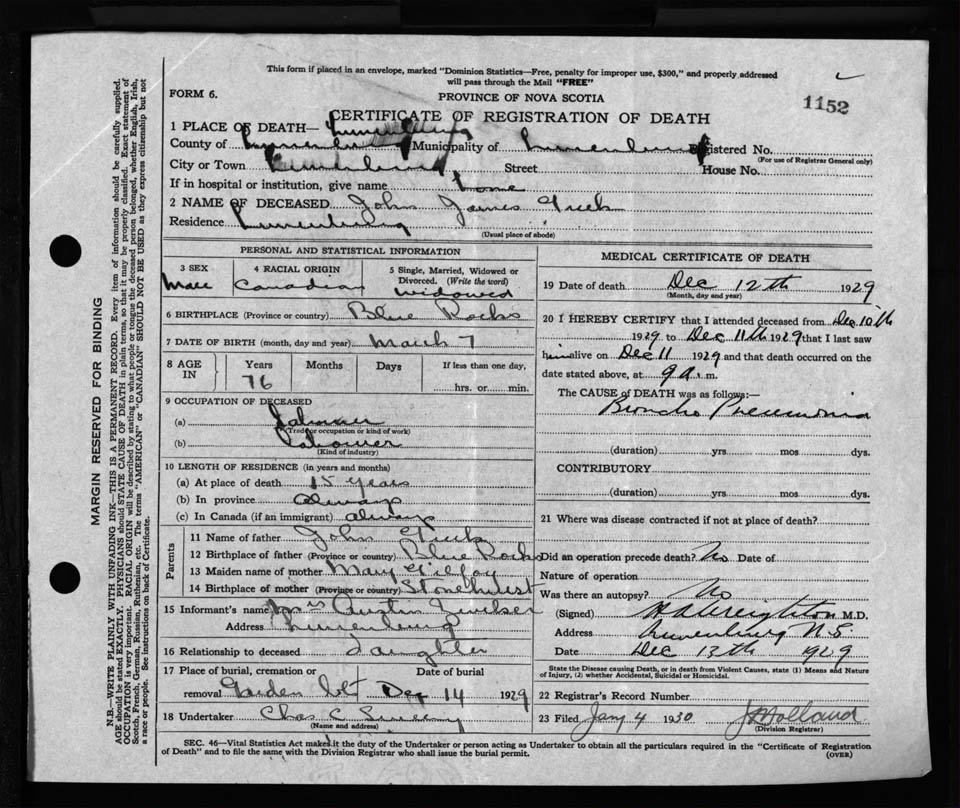 This form if placed in an envelope, marked "Dominion Statistics—Free, penalty for improper use, $300," and properly addressed
will pass through the Mail "FREE"
FORM 6.
PROVINCE OF NOVA SCOTIA
1152
CERTIFICATE OF REGISTRATION OF DEATH
1 PLACE OF DEATH—
County of Lunenburg Municipality of Lunenburg Registered No.
(For use of Registrar General only)
City or Town Lunenburg Street House No.
If in hospital or institution, give name home
2 NAME OF DECEASED John James
Residence Lunenburg
(Usual place of abode)
PERSONAL AND STATISTICAL INFORMATION
3 SEX
Male
4 RACIAL ORIGIN
Canadian
5 Single, Married, Widowed or
Divorced. (Write the word)
widowed
6 BIRTHPLACE (Province or country) Blue Rocks
7 DATE OF BIRTH (month, day and year) March 7
8 AGE
IN
Years
Months
Days
If less than one day,
76
hrs. or min.
9 OCCUPATION OF DECEASED
(a) Labourer
(Trade or occupation or kind of work)
(b) Labourer
(Kind of industry)
10 LENGTH OF RESIDENCE (in years and months)
(a) At place of death 15 years
(b) In province always
(c) In Canada (if an immigrant) always
Parents
11 Name of father John
12 Birthplace of father (Province or country) Blue Rocks
13 Maiden name of mother Mary Gilfoy
14 Birthplace of mother (Province or country) Stonehurst
15 Informant's name Mrs Austin
Address Lunenburg
16 Relationship to deceased daughter
17 Place of burial, cremation or
removal Garden lot
Date of burial
Dec 14 1929
18 Undertaker Chas C Sweeny
(Name and address)
MEDICAL CERTIFICATE OF DEATH
19 Date of death Dec 12th 1929
(Month, day and year)
20 I HEREBY CERTIFY that I attended deceased from Dec 10th
1929 to Dec 11th 1929 that I last saw
him alive on Dec 11 1929 and that death occurred on
date stated above, at 9 a.m.
The CAUSE OF DEATH was as follows:—
Broncho Pneumonia
(duration) yrs. mos dys.
CONTRIBUTORY
(duration) yrs. mos dys.
21 Where was disease contracted if not at place of death?
Did an operation precede death? No Date of
Nature of operation
Was there an autopsy? No
(Signed) Creighton M.D.
Address Lunenburg N.S.
Date Dec 13th 1929
State the Disease causing Death, or in death from Violent Causes, state (1) Means and Nature
of Injury, (2) whether Accidental, Suicidal or Homicidal.
22 Registrar's Record Number
23 Filed Jany 4 1930 Holland
(Division Registrar)
SEC. 46—Vital Statistics Act makes it the duty of the Undertaker or person acting as Undertaker to obtain all the particulars required in the "Certificate of Registration
of Death" and to file the same with the Division Registrar who shall issue the burial permit.
(OVER)
MARGIN RESERVED FOR BINDING
N.B.—WRITE PLAINLY WITH UNFADING INK—THIS IS A PERMANENT RECORD. Every item of information should be carefully supplied.
AGE should be stated EXACTLY. PHYSICIANS should STATE CAUSE OF DEATH in plain terms, so that it may be properly classified. Exact statement of
OCCUPATION is very important. RACIAL ORIGIN will be described by stating to what people or tongue the deceased person belonged, whether English, Irish,
Scotch, French, German, Russian, Ruthenian, etc. The terms "AMERICAN" or "CANADIAN" SHOULD NOT BE USED as they express citizenship but not
a race or people. See instructions on back of Certificate.